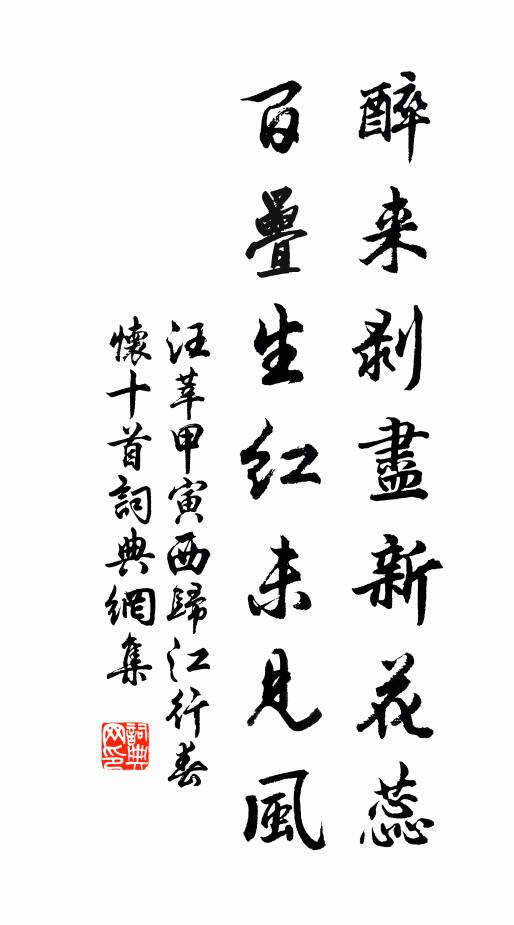 醉来剥盡新花蕊
百疊生紅未見風
汪莘甲寅西歸江行春
懷十首詞典網集
詞典网印